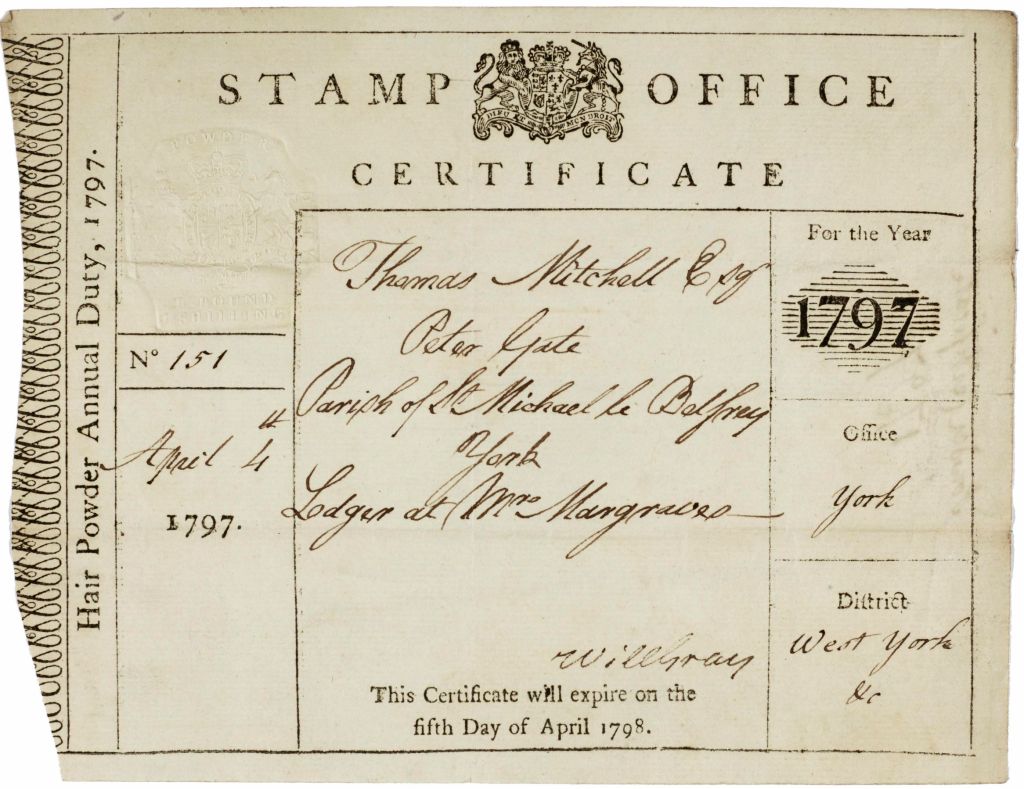 STAMP OFFICE
DIEU ET MON DROIT
CERTIFICATE
Hair Powder Annual Duty, 1797.
POWDER
1 POUND
1 SHILLING
No 151
April 4th
1797.
Thomas Mitchell Esqr
Peter Gate
Parish of St Michael le Belfrey
York
Lodger at Mrs Margraves
Will Gray
This Certificate will expire on the
fifth Day of April 1798.
For the Year
1797
Office
York
District
West York
&c